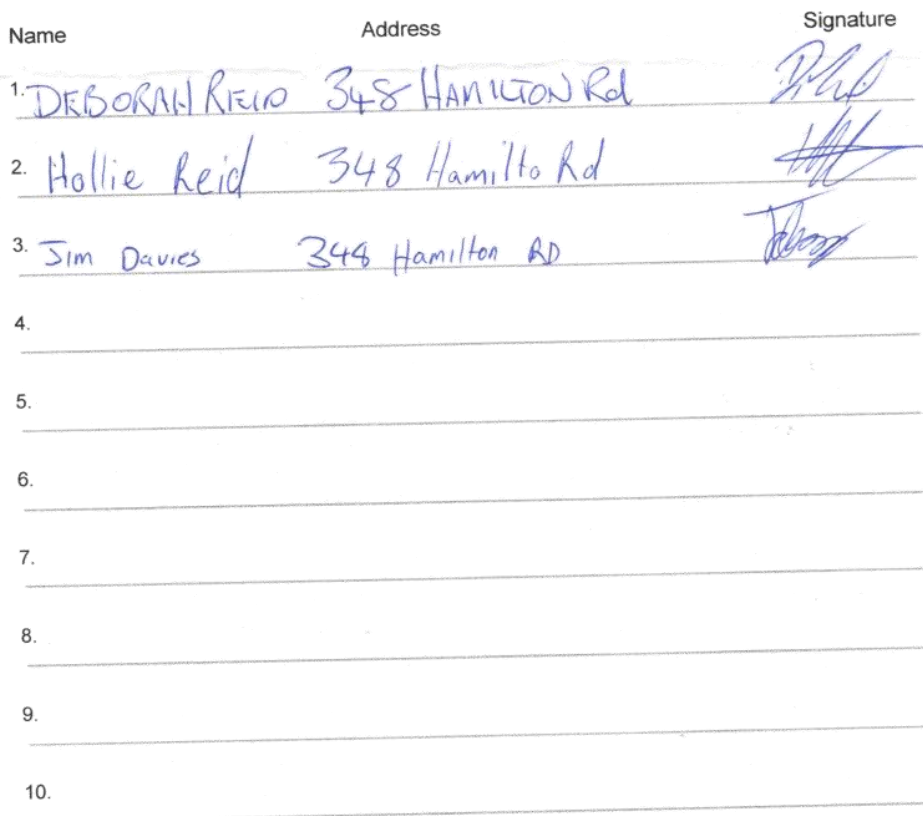 Name Address Signature
1. DEBORAH REID 348 HAMILTON Rd
2. Hollie Reid 348 Hamilto Rd
3. Jim Davies 348 Hamilton RD
4.
5.
6.
7.
8.
9.
10.